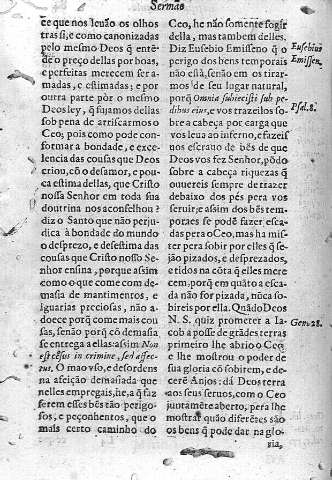 Sermão
ce que nos leuão os olhos
tras si, e como canonizadas
pelo mesmo Deos q̃ entẽ-
de o preço dellas por boas,
e perfeitas merecem ser a-
madas, e estimadas; e por
outra parte por o mesmo
Deos ley, q̃ sujamos dellas
sob pena de arriscarmos o
Ceo; pois como pode con-
formar a bondade, e exce-
lencia das cousas que Deos
criou, cõ o desamor, e pou-
ca estima dellas, que Cristo
nossa Senhor em toda sua
doutrina nos aconselhou?
diz o Santo que não perju-
dica à bondade do mundo
o desprezo, e desestima das
cousas que Cristo nosso Se-
nhor ensina, porque assim
como o que come com de-
masia de mantimentos, e
iguarias preciosas, não a-
doece porq̃ come mais cou
sas, senão porq̃ cõ demasia
se entrega a ellas: assim Non
est cẽsus in crimine, sed affec-
tus. O mao vso, e desordens
na afeição demasiada que
nelles empregais, he, a q̃ faz
serem esses bẽs tão perigo-
sos, e peçonhentos, que o
mais certo caminho do
Ceo, he não somente fogir
della, mas tambem delles.
Diz Eusebio Emisseno q̃ o
perigo dos bens temporais
não està, senão em os tirar-
mos de seu lugar natural,
porq̃ Omnia subiecisti sub pe-
dibus eius, e vos trazeilos so-
bre a cabeça por carga que
vos leua ao inferno, e fazeis
nos escrauo de bẽs de que
Deos vos fez Senhor, põdo
sobre a cabeça riquezas q̃
ouuereis sempre de trazer
debaixo dos pés pera vos
seruir; e assim dos bẽs tem-
poraes se podè fazer esca-
das pera o Ceo, mas ha mis-
ter pera sobir por elles q̃ se-
jão pizados, e desprezados,
e tidos na cõta q̃ elles mere
cem, porq̃ em quãto a esca-
da não for pizada, nũca so-
bireis por ella. Quãdo Deos
N. S. quiz prometer a Ia-
cob a posse de grãdes terras
primeiro lhe abrio o Ceo
e lhe mostrou o poder de
sua gloria cõ sobirem, e de-
cerẽ Anjos: dà Deos terra
aos seus seruos, com o Ceo
juntamẽte aberto, pera lhe
mostrar quão diferẽtes são
os bens q̃ pode dar na glo-
ria,
Eusebius
Emissen.
Psal. 8.
Gen. 28.